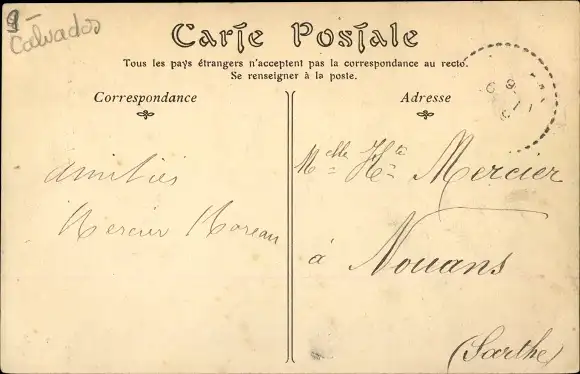 Calvados
Carte Postale
Tous les pays étrangers n'acceptent pas la correspondance au recto.
Se renseigner à la poste.
Correspondance
Adresse
Amitiés
Mercier Moreau
Melle Hte Mercier
à Nouans
(Sarthe)